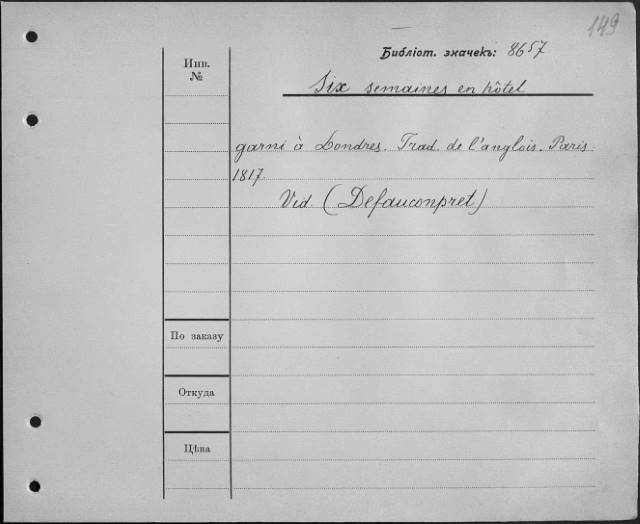 149
Библіот. значекъ: 8657
Инв.
№
Six semaines en hôtel
garni à Londres. Trad. de l'anglois. Paris.
1817.
Vid. (Defauconpret)
По заказу
Откуда
Цѣна